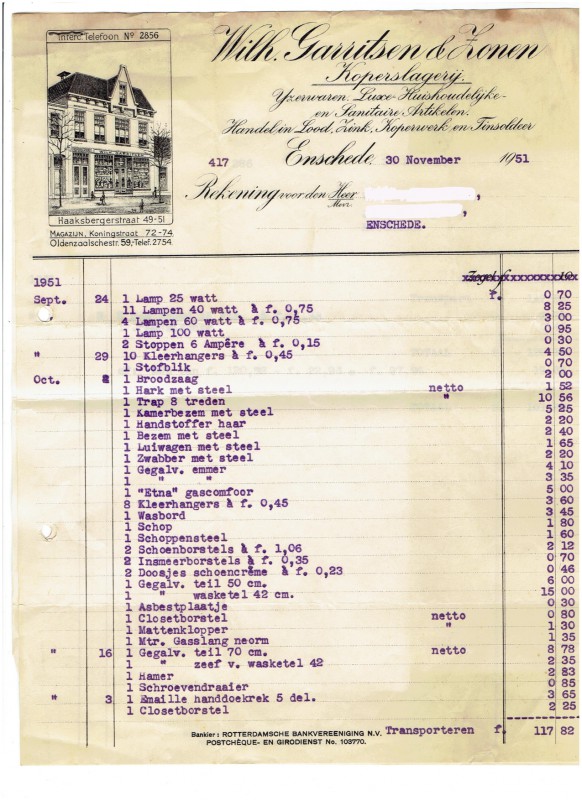 Interc. Telefoon No 2856
Haaksbergerstraat 49-51
Magazijn, Koningstraat 72-74
Oldenzaalschestr. 59,-Telef. 2754.
Wilh. Garritsen & Zonen
Koperslagerij.
Yzerwaren. Luxe-Huishoudelijke-
en Sanitaire Artikelen.
Handel in Lood, Zink, Koperwerk en Tinsoldeer
417 Enschede, 30 November 1951
Rekening voor den Heer ,
Mevr. ,
ENSCHEDE.
1951 Zegel f.
Sept. 24 1 Lamp 25 watt f. 0 70
11 Lampen 40 watt à f. 0,75 8 25
4 Lampen 60 watt à f. 0,75 3 00
1 Lamp 100 watt 0 95
2 Stoppen 6 Ampère à f. 0,15 0 30
" 29 10 Kleerhangers à f. 0,45 4 50
1 Stofblik 0 70
Oct. 2 1 Broodzaag 2 00
1 Hark met steel netto 1 52
1 Trap 8 treden " 10 56
1 Kamerbezem met steel 5 25
1 Handstoffer haar 2 20
1 Bezem met steel 2 40
1 Luiwagen met steel 1 65
1 Zwabber met steel 2 20
1 Gegalv. emmer 4 10
1 " " 1 35
1 "Etna" gascomfoor 5 00
8 Kleerhangers à f. 0,45 3 60
1 Wasbord 3 45
1 Schop 1 80
1 Schoppensteel 1 60
2 Schoenborstels à f. 1,06 2 12
2 Insmeerborstels à f. 0,35 0 70
2 Doosjes schoencrême à f. 0,23 0 46
1 Gegalv. teil 50 cm. 6 00
1 " wasketel 42 cm. 15 00
1 Asbestplaatje 0 30
1 Closetborstel netto 0 80
1 Mattenklopper " 1 30
1 Mtr. Gasslang neorm 1 35
" 16 1 Gegalv. teil 70 cm. netto 8 78
1 " zeef v. wasketel 42 2 35
1 Hamer 2 83
1 Schroevendraaier 0 85
" 3 1 Emaille handdoekrek 5 del. 3 65
1 Closetborstel 2 25
Transporteren f. 117 82
Bankier: ROTTERDAMSCHE BANKVEREENIGING N.V.
POSTCHÈQUE- EN GIRODIENST No. 103770.